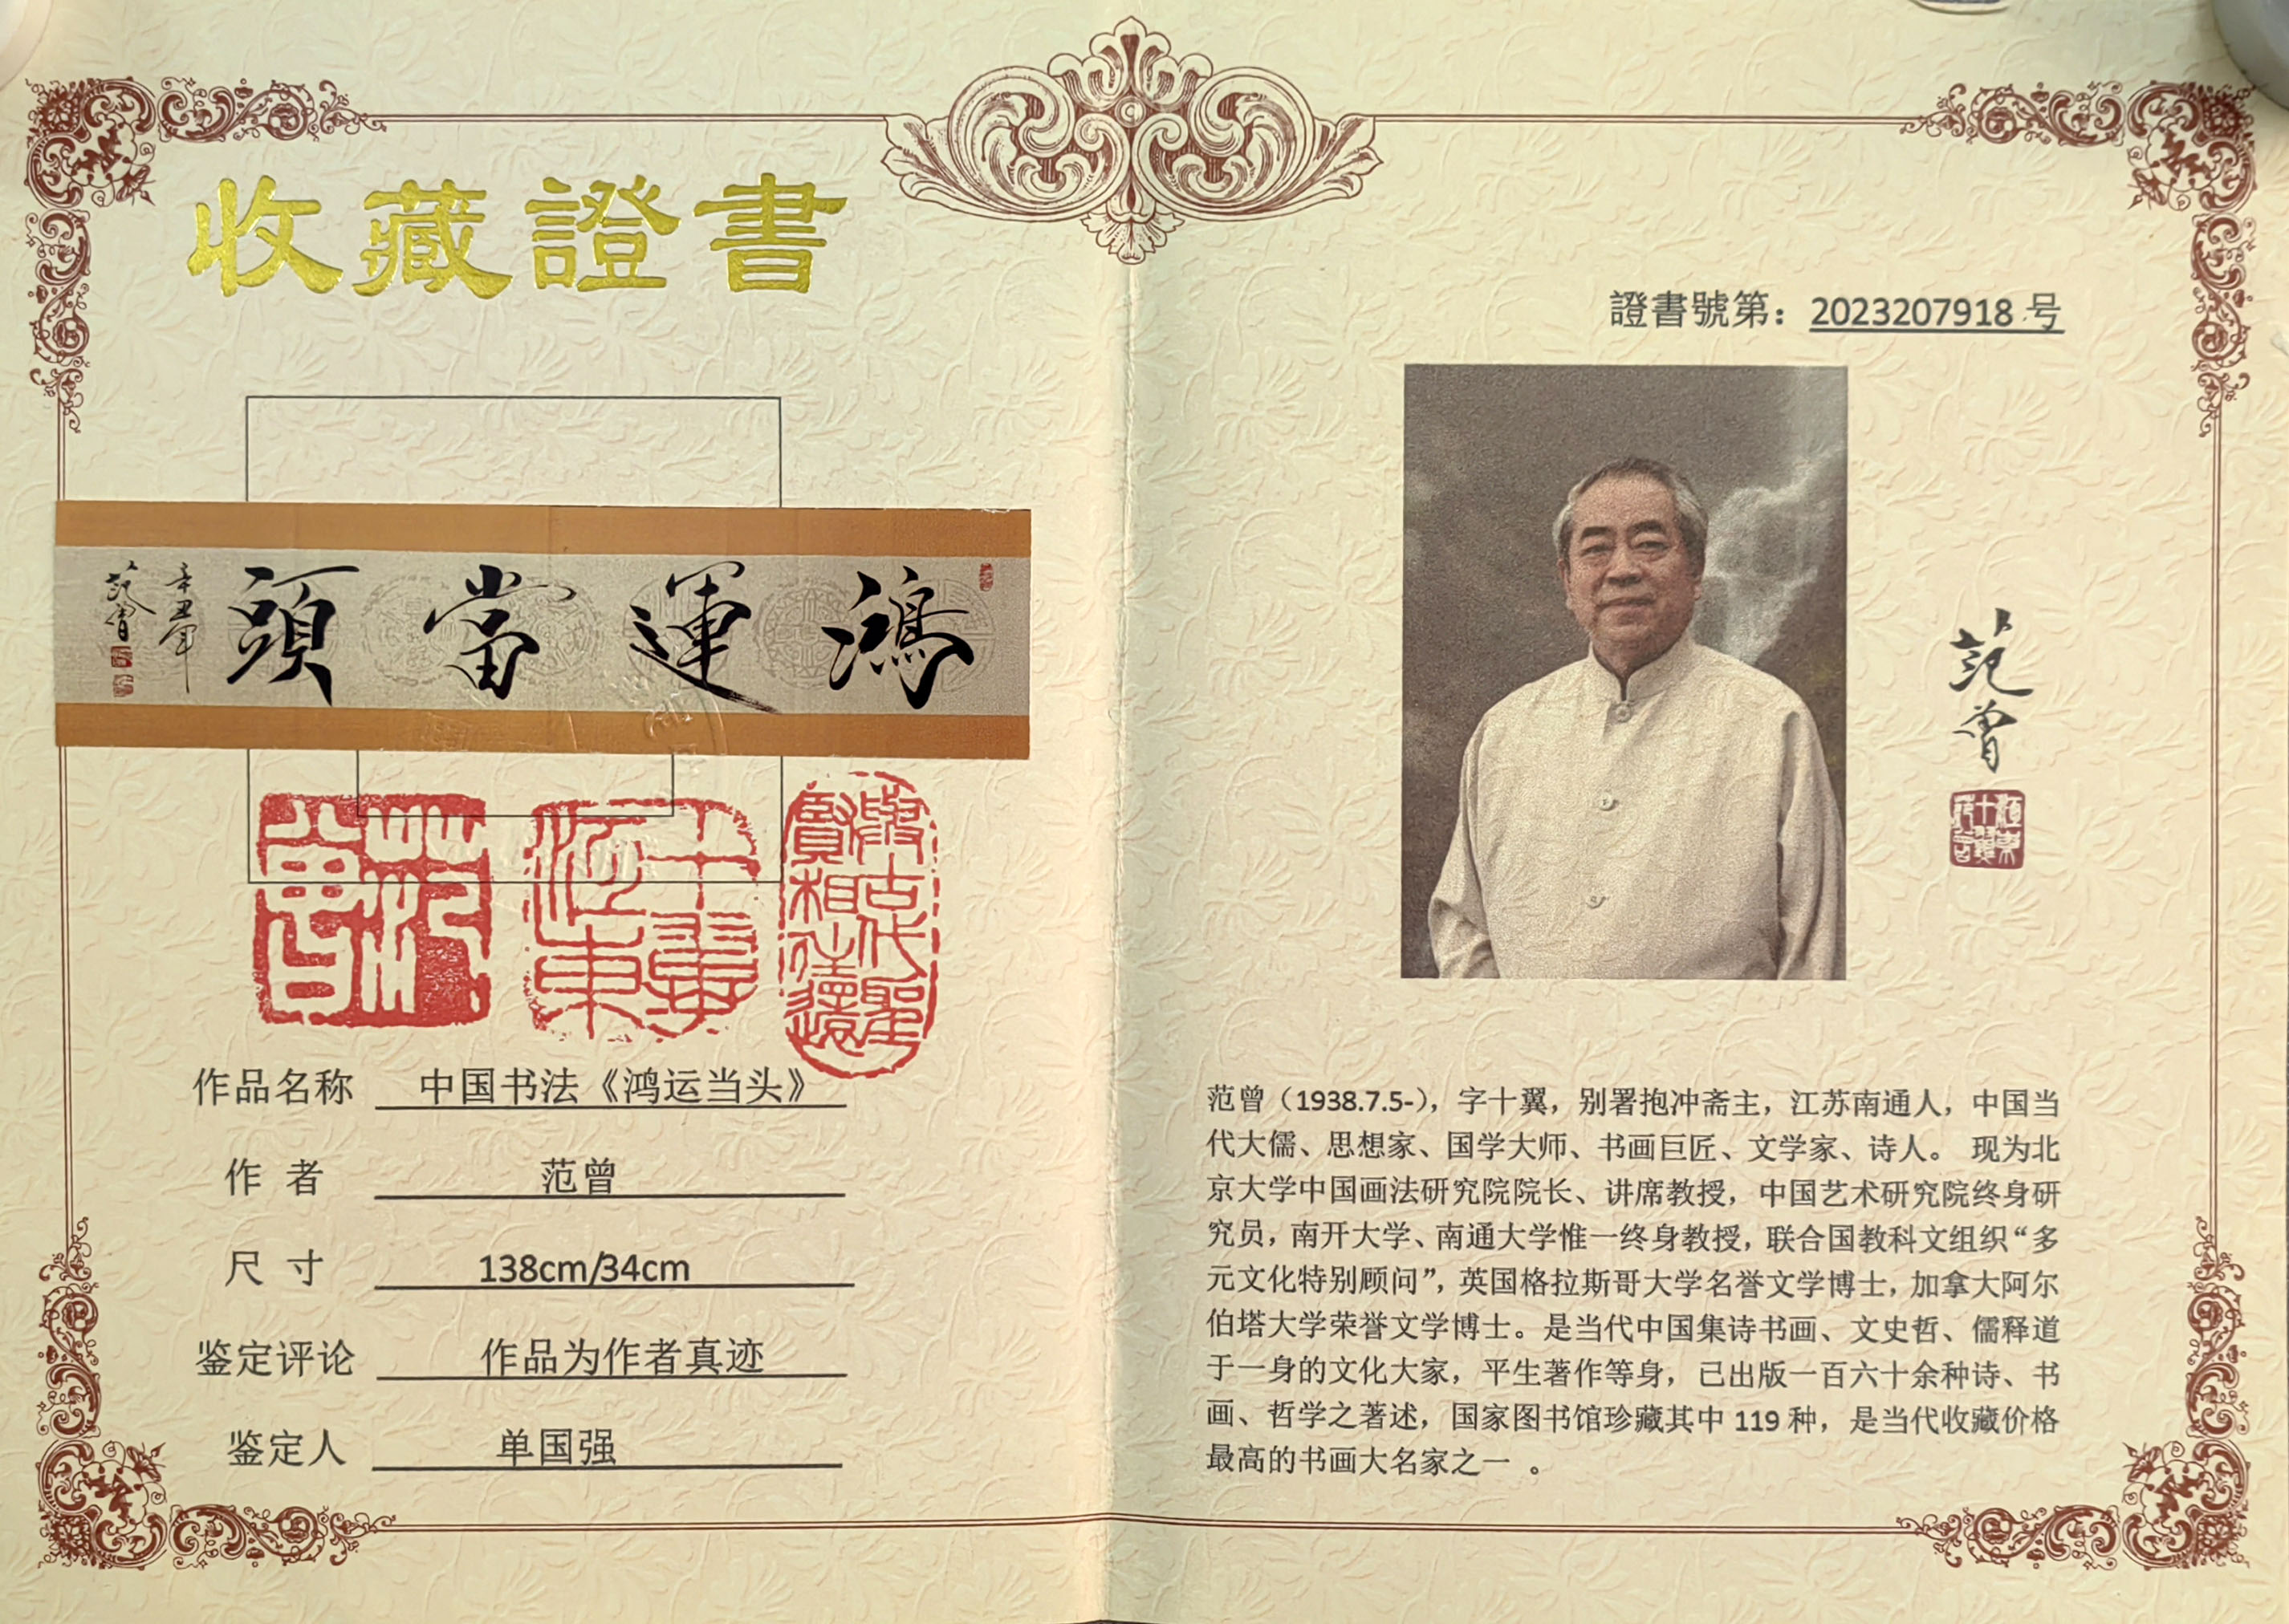 收藏證書
鴻運當頭
辛丑年
范曾
范曾
江東
十翼
與古代聖
賢相往還
作品名称 中国书法《鸿运当头》
作 者 范曾
尺 寸 138cm/34cm
鉴定评论 作品为作者真迹
鉴定人 单国强
證書號第：2023207918 号
范曾
范曾（1938.7.5-），字十翼，别署抱冲斋主，江苏南通人，中国当
代大儒、思想家、国学大师、书画巨匠、文学家、诗人。 现为北
京大学中国画法研究院院长、讲席教授，中国艺术研究院终身研
究员，南开大学、南通大学惟一终身教授，联合国教科文组织“多
元文化特别顾问”，英国格拉斯哥大学名誉文学博士，加拿大阿尔
伯塔大学荣誉文学博士。是当代中国集诗书画、文史哲、儒释道
于一身的文化大家，平生著作等身，己出版一百六十余种诗、书
画、哲学之著述，国家图书馆珍藏其中 119 种，是当代收藏价格
最高的书画大名家之一 。